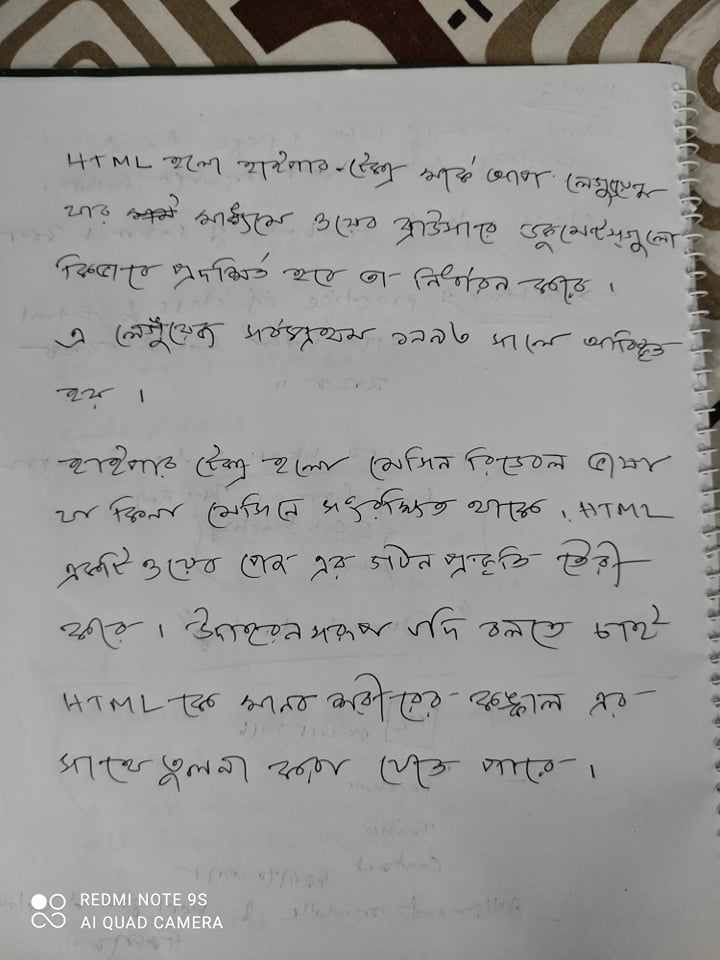 HTML হলো হাইপার টেক্সট মার্ক আপ লেঙ্গুয়েজ
যার মাধ্যমে ওয়েব ব্রাউসারে ডকুমেন্টসগুলো
কিভাবে প্রদর্শিত হবে তা নির্ধারন করে।
এ লেঙ্গুয়েজ সর্বপ্রথম ১৯৯৩ সালে আবিষ্কৃত
হয়।
হাইপার টেক্সট হলো মেসিন রিডেবল ভাষা
যা কিনা মেসিনে সংরক্ষিত থাকে। HTML
একটি ওয়েব পেজ এর গঠন প্রকৃতি তৈরী
করে। উদাহরন সরূপ যদি বলতে চাই
HTML কে মানব শরীরের কঙ্কাল এর
সাথে তুলনা করা যেতে পারে।
REDMI NOTE 9S
AI QUAD CAMERA